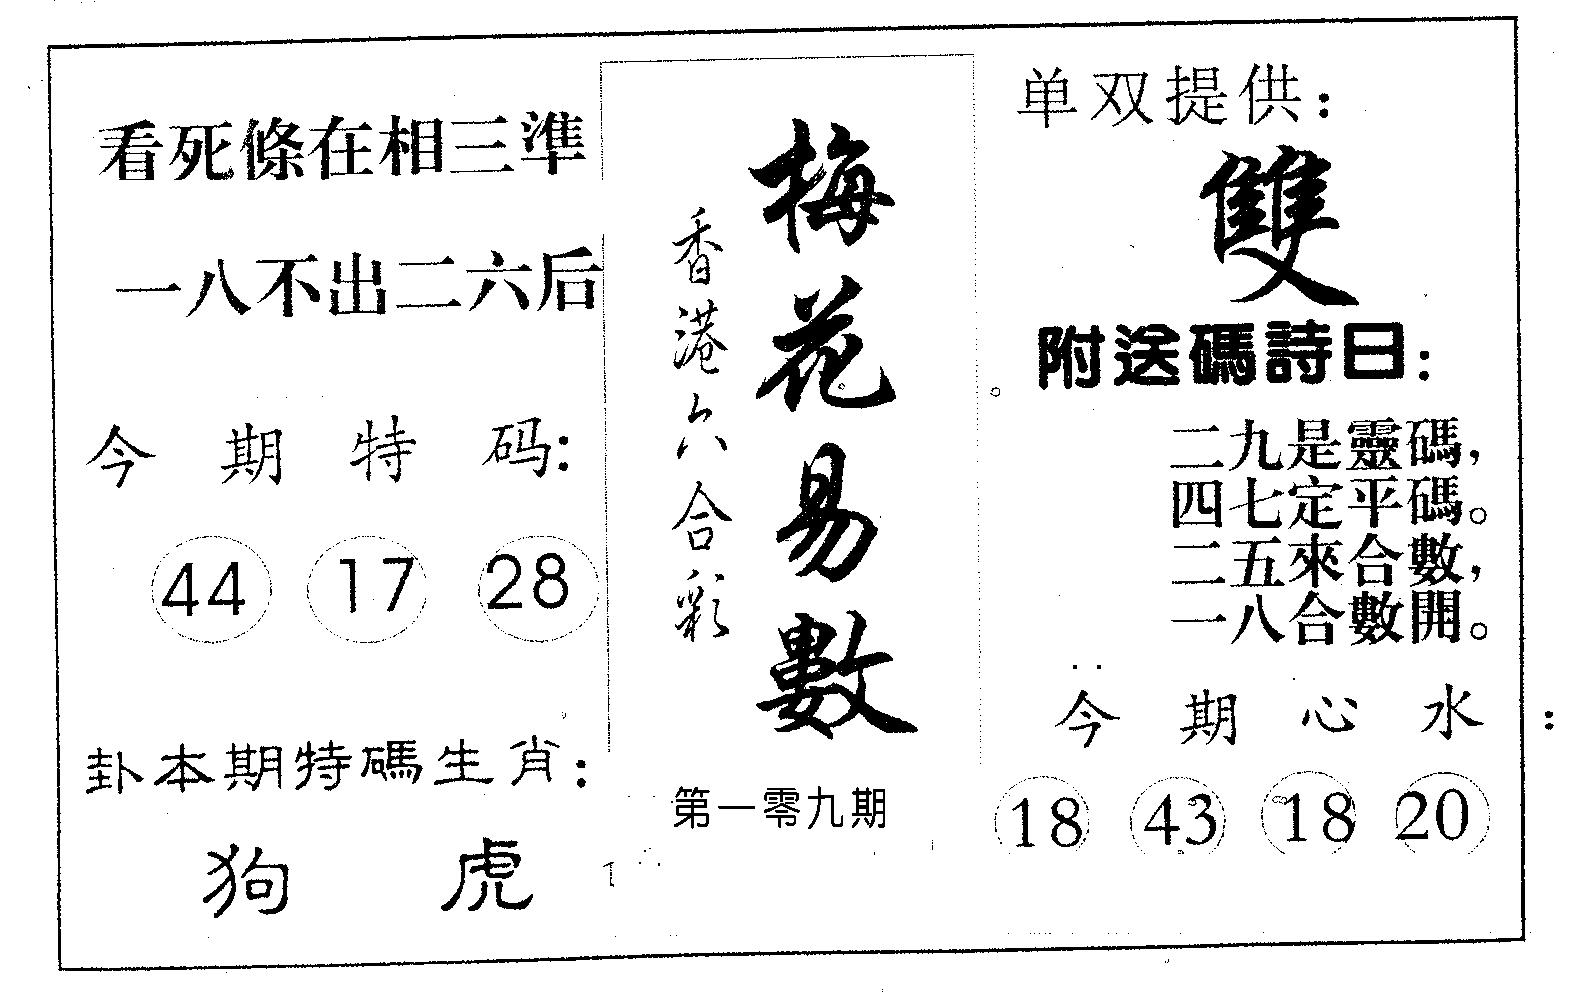 看死條在相三準
一八不出二六后
今期特码:
44 17 28
卦本期特碼生肖:
狗 虎
梅花易數
香港六合彩
第一零九期
单双提供:
雙
附送碼詩曰:
二九是靈碼,
四七定平碼。
二五來合數,
一八合數開。
今期心水:
18 43 18 20